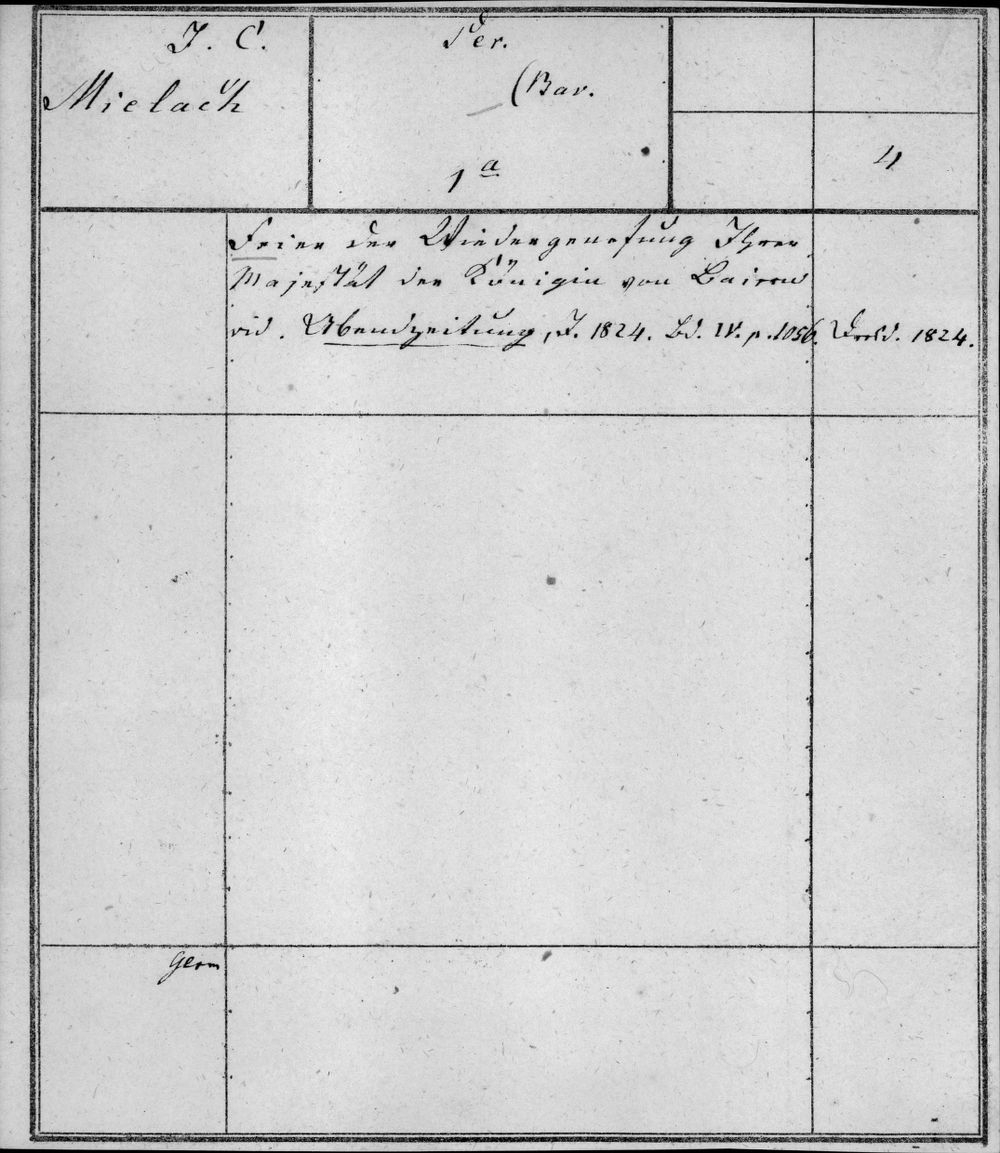 J. C.
Mielach
Per.
(Bav.
1a
4
Feier der Wiedergenesung Ihrer
Majestät der Königin von Baiern
vid. Abendzeitung, J. 1824. Bd. IV. p. 1056. Dresd. 1824.
Germ